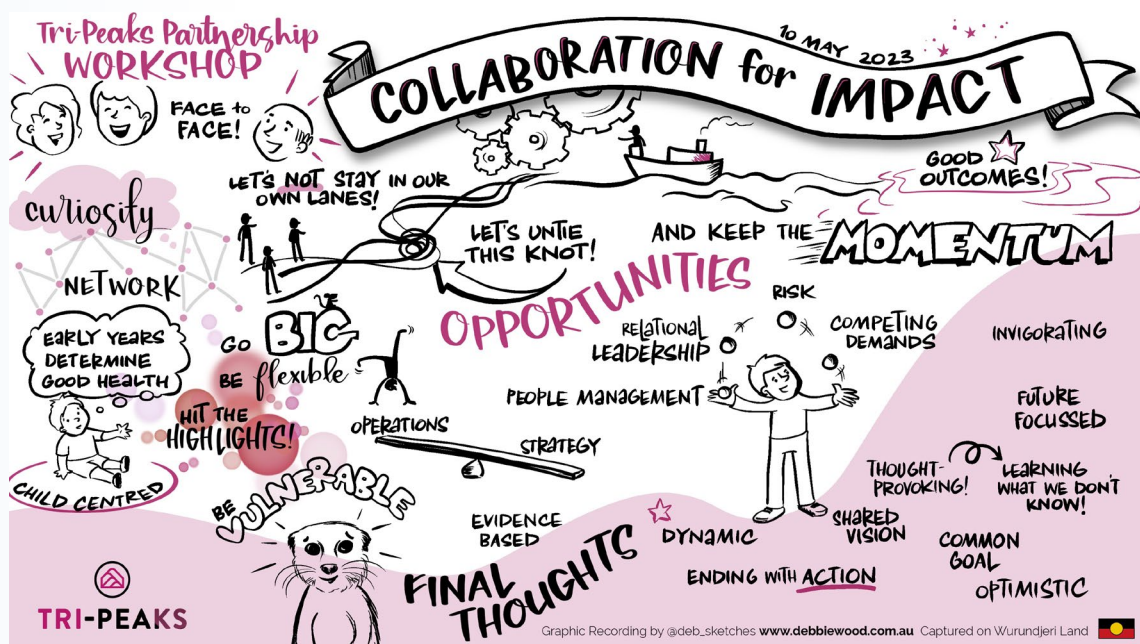 Tri-Peaks Partnership
WORKSHOP
FACE to
FACE!
10 MAY 2023
COLLABORATION for IMPACT
GOOD
OUTCOMES!
LET'S NOT STAY IN OUR
OWN LANES!
curiosity
NETWORK
LET'S UNTIE
THIS KNOT!
AND KEEP THE MOMENTUM
OPPORTUNITIES
EARLY YEARS
DETERMINE
GOOD HEALTH
CHILD CENTRED
GO BIG
BE flexible
HIT THE
HIGHLIGHTS!
OPERATIONS
STRATEGY
BE VULNERABLE
RISK
RELATIONAL
LEADERSHIP
COMPETING
DEMANDS
PEOPLE MANAGEMENT
INVIGORATING
FUTURE
FOCUSSED
THOUGHT-
PROVOKING!
LEARNING
WHAT WE DON'T
KNOW!
EVIDENCE
BASED
FINAL
THOUGHTS
DYNAMIC
SHARED
VISION
COMMON
GOAL
ENDING WITH ACTION
OPTIMISTIC
TRI-PEAKS
Graphic Recording by @deb_sketches www.debbiewood.com.au Captured on Wurundjeri Land